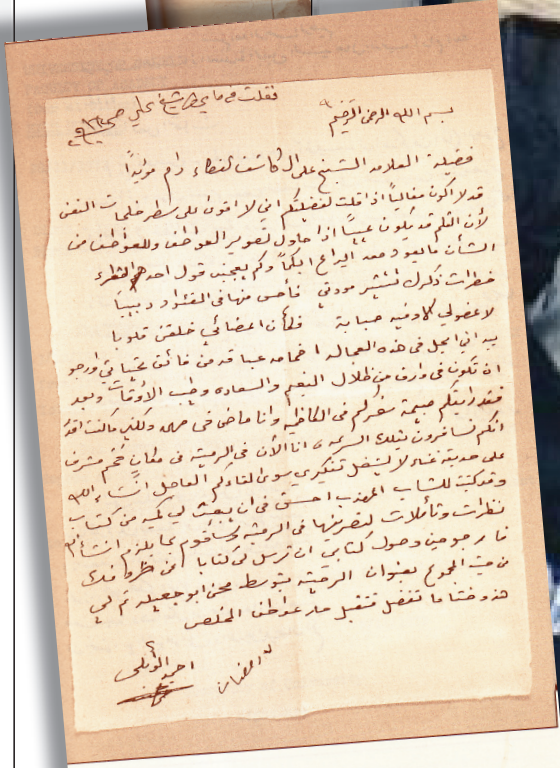 فقلت في ما يخص شيخ علي ص
بسم الله الرحمن الرحيم
فضيلة العلامه الشيخ علي ال كاشف الغطاء دام مؤيداً
قد لا اكون مغالياً اذا قلت لفضيلتكم اني لا اقوى على سطر خلجات النفس
لأن القلم قد يكون عيياً اذا حاول تصوير العواطف وللعواطف من
الشأن ما يعود معه اليراع ابكماً وكم يعجبني قول احد الشعراء
خطرات ذكرك تستثير مودتي فأحس منها في الفؤاد دبيبا
لا عضو لي الا وفيه صبابة فكأن اعضائي خلقن قلوبا
بيد اني احمل في هذه العجاله اضمامه عباقه من فائق تحياتي وارجو
ان تكون في وارف من ظلال النعيم والسعاده وطيب الأوقات وبعد
فقد رأيتكم صبيحة سفركم في الكاظميه وانا ماض في ولكني ما كنت
انكم تسافرون بتلك السرعه انا الأن في الرميثه في مكان فخم مشرف
على حديقة غناء لا يشغل تفكيري سوى لقاءكم العاجل انشاء الله
وقد كتبت للشاب المهذب احسن في ان يبعث لي كميه من كتاب
نظرات وتأملات لتصريفها في الرميثه وسأقوم بما يلزم انشاء الله
فأرجو حين وصول كتابي ان ترسل لي كتابا عن
من حيث المجموع بعنوان الرميثه بتوسط محسن ابو جعيله ثم لي
هذه ختاما تفضل بتقبل عواطف المخلص
رمضان
احمد الوائلي